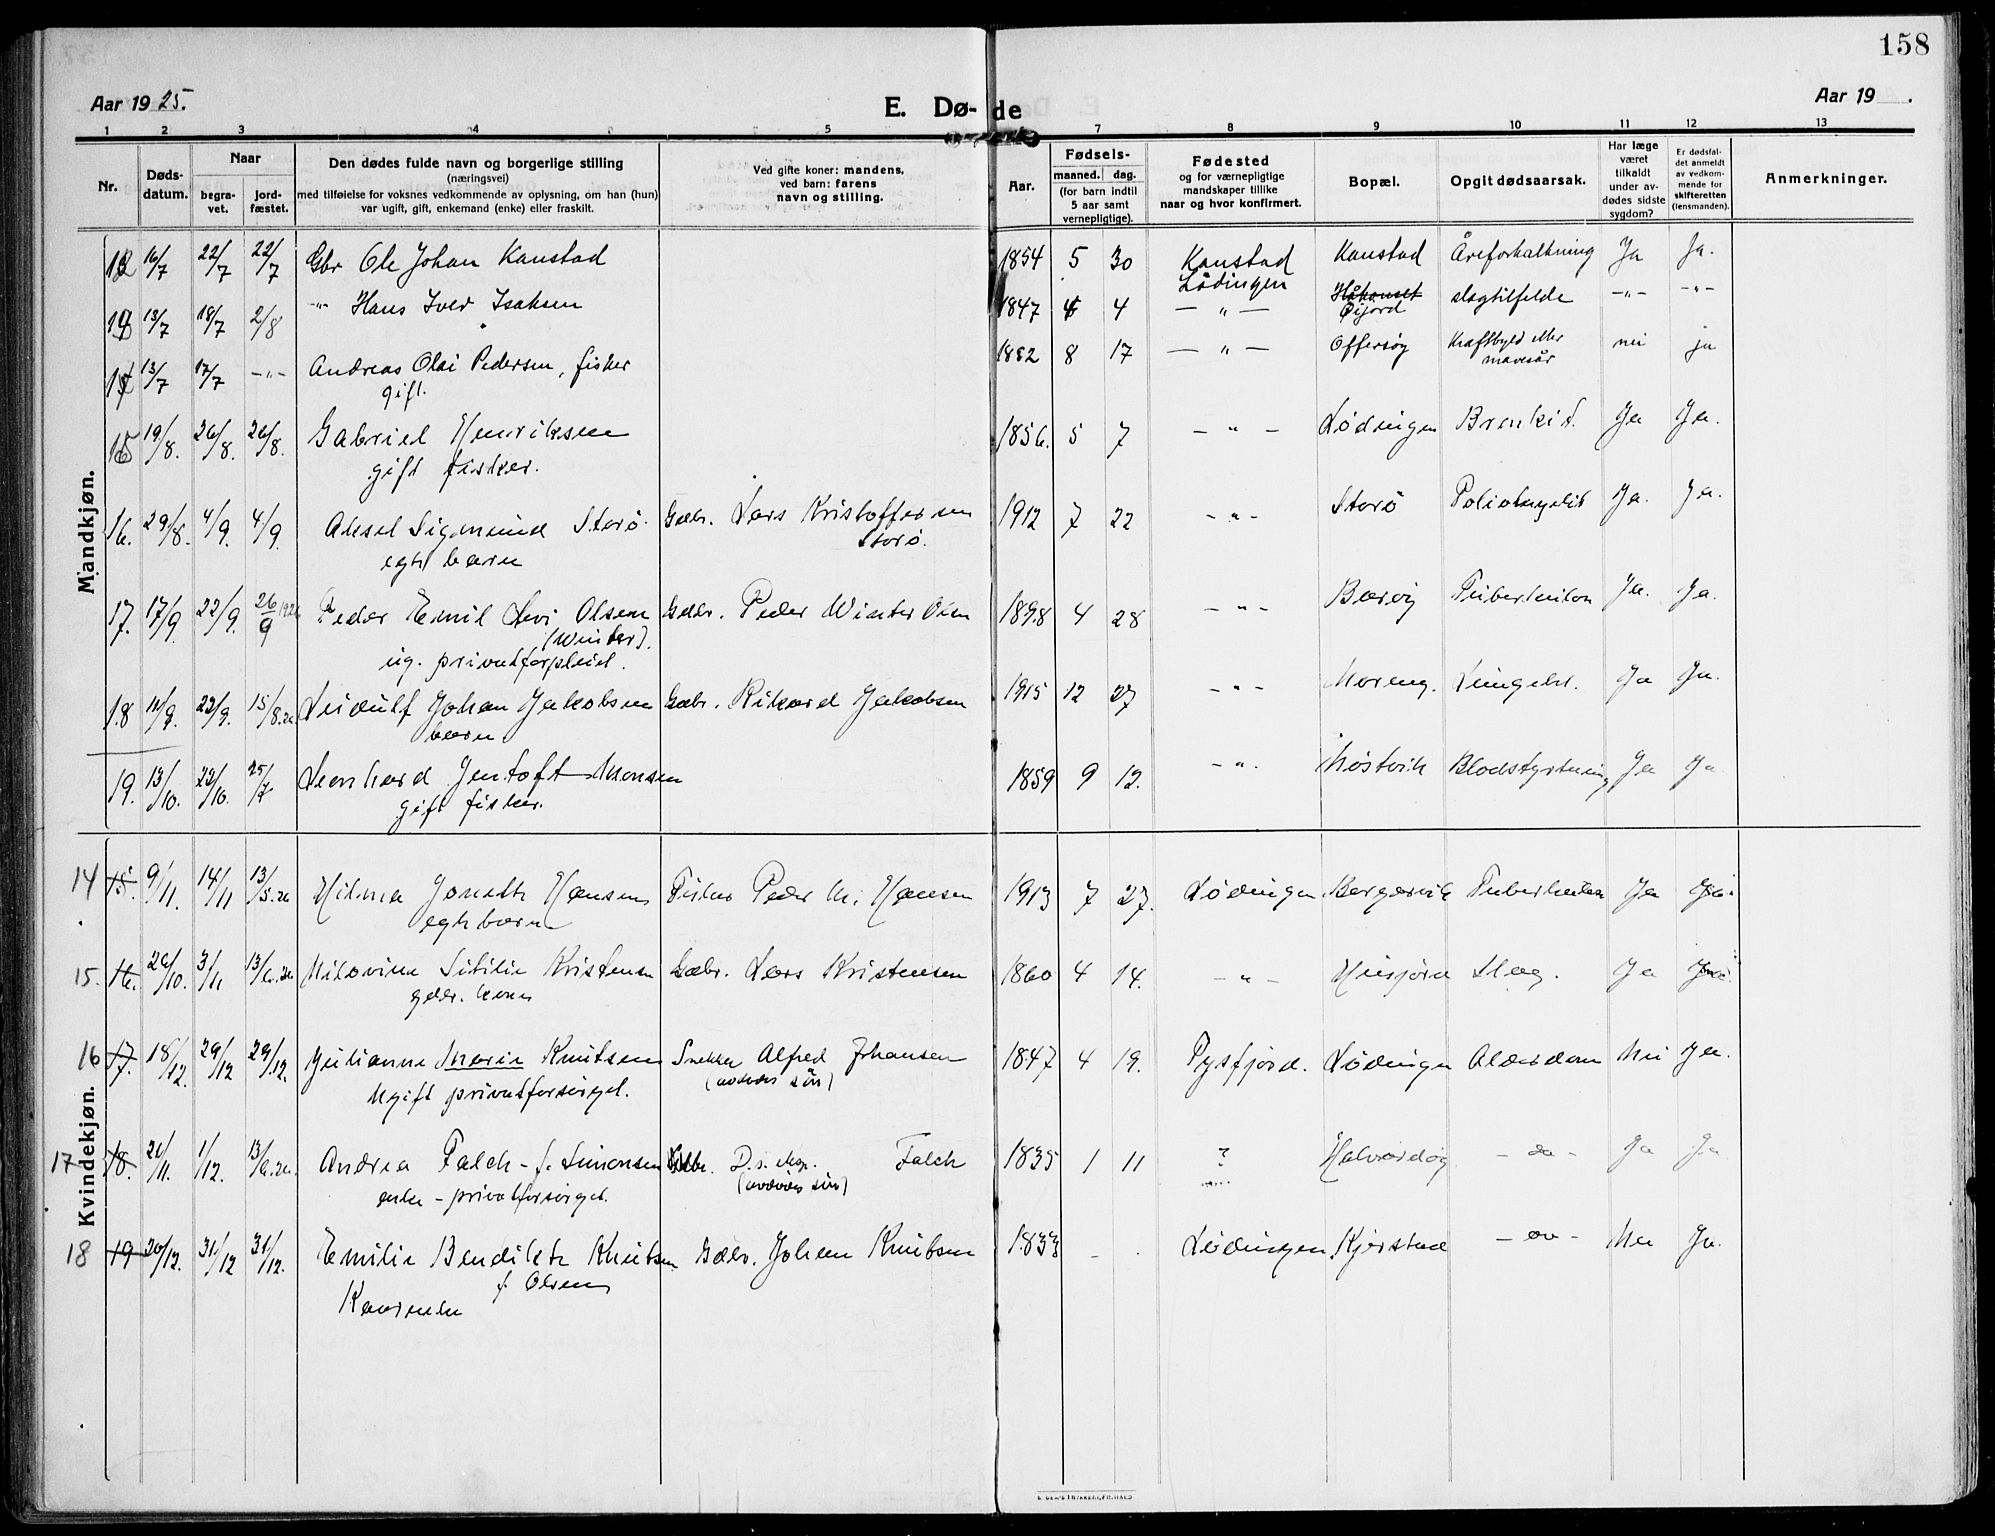 158
Aar 1925.
E. Dø-de
Aar 19 .
1 2 3 4 5 7 8 9 10 11 12 13
Nr.
Døds-
datum.
Naar
begra-
vet.
jord-
fæstet.
Den dødes fulde navn og borgerlige stilling
(næringsvei)
med tilføielse for voksnes vedkommende av oplysning, om han (hun)
var ugift, gift, enkemand (enke) eller fraskilt.
Ved gifte koner: mandens,
ved barn: farens
navn og stilling.
Aar.
Fødsels-
maaned. dag.
(for barn indtil
5 aar samt
vernepligtige).
Fødested
og for værnepligtige
mandskaper tillike
naar og hvor konfirmert.
Bopæl.
Opgit dødsaarsak.
Har læge
været
tilkaldt
under av-
dødes sidste
sygdom?
Er dødsfal-
det anmeldt
av vedkom-
mende for
skifteretten
(lensmanden).
Anmerkninger.
Mandkjøn.
16/7 22/7 22/7 Gbr Ole Johan Kanstad 1854 5 30 Kanstad Kanstad Åreforkalkning Ja Ja.
Lødingen
13/7 18/7 2/8 -"- Hans Iver Isaksen 1847 4 -"- Øijord slagtilfelde -"- -"-
13/7 17/7 -"- Andreas Olai Pedersen, fisker 1882 8 17 -"- Offersøy Kræftbyld eller nei ja
gift. mavesår
15 19/8. 26/8. 26/8. Gabriel Henriksen 1856. 5 7 -"- Lødingen Bronkit. Ja Ja.
gift fisker.
16. 29/8. 4/9. 4/9. Aksel Sigmund Storø. Gdbr. Lars Kristoffersen 1912 7 22 -"- Storø Ja. Ja.
egte barn Storø.
17. 17/9. 22/9. 26/9 1926 Peder Emil Levi Olsen Gdbr. Peder Winter Olsen 1898 4 28 -"- Barøy Tuberkulose Ja. Ja.
(Winter).
ug. privatforpleiet.
18 22/9. 15/8.26 Leidulf Johan Jakobsen Gdbr. Rikard Jakobsen 1915 12 27 -"- Ja Ja.
barn
19. 13/10. 22/10. 25/7 Leonhard Jentoft Monsen 1859 9 12. -"- Blodstyrtning Ja Ja.
gift fisker.
Kvindekjøn.
14 15. 9/11. 14/11 13/5.26 Hilma Jonette Hansen Fisker Peder M. Hansen 1913 7 27. Lødingen Tuberkulose Ja Ja.
egte barn
15. 16. 26/10. 3/11. 13/6.26 Kristensen Gdbr. Lars Kristensen 1860 4 14. -"- Slag. Ja
gdbr. kone
16 17. 18/12. 29/12 29/12. Julianne Marie Knutsen Snekker Alfred Johansen 1847 4 19. Tysfjord. Lødingen Alderdom Nei Ja.
Ugift privatforsørget. (avdødes søn)
17 18. 21/11. 1/12. 13/6.26. Andrea Falch - f. Simonsen Gdbr. Falch 1835 1 11 ? Halvardøy - do - Ja Ja
enke - privatforsørget. (avdødes søn)
18 19 20/12. 31/12 31/12. Emilie Bendikte Knutsen Gdbr. Johan Knutsen 1833 - . Lødingen Kjerstad - do - Nei Ja.
f. Olsen
Kaarenke